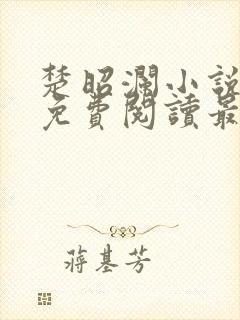 楚昭瀾小說
免費閱讀最
蔣基芳